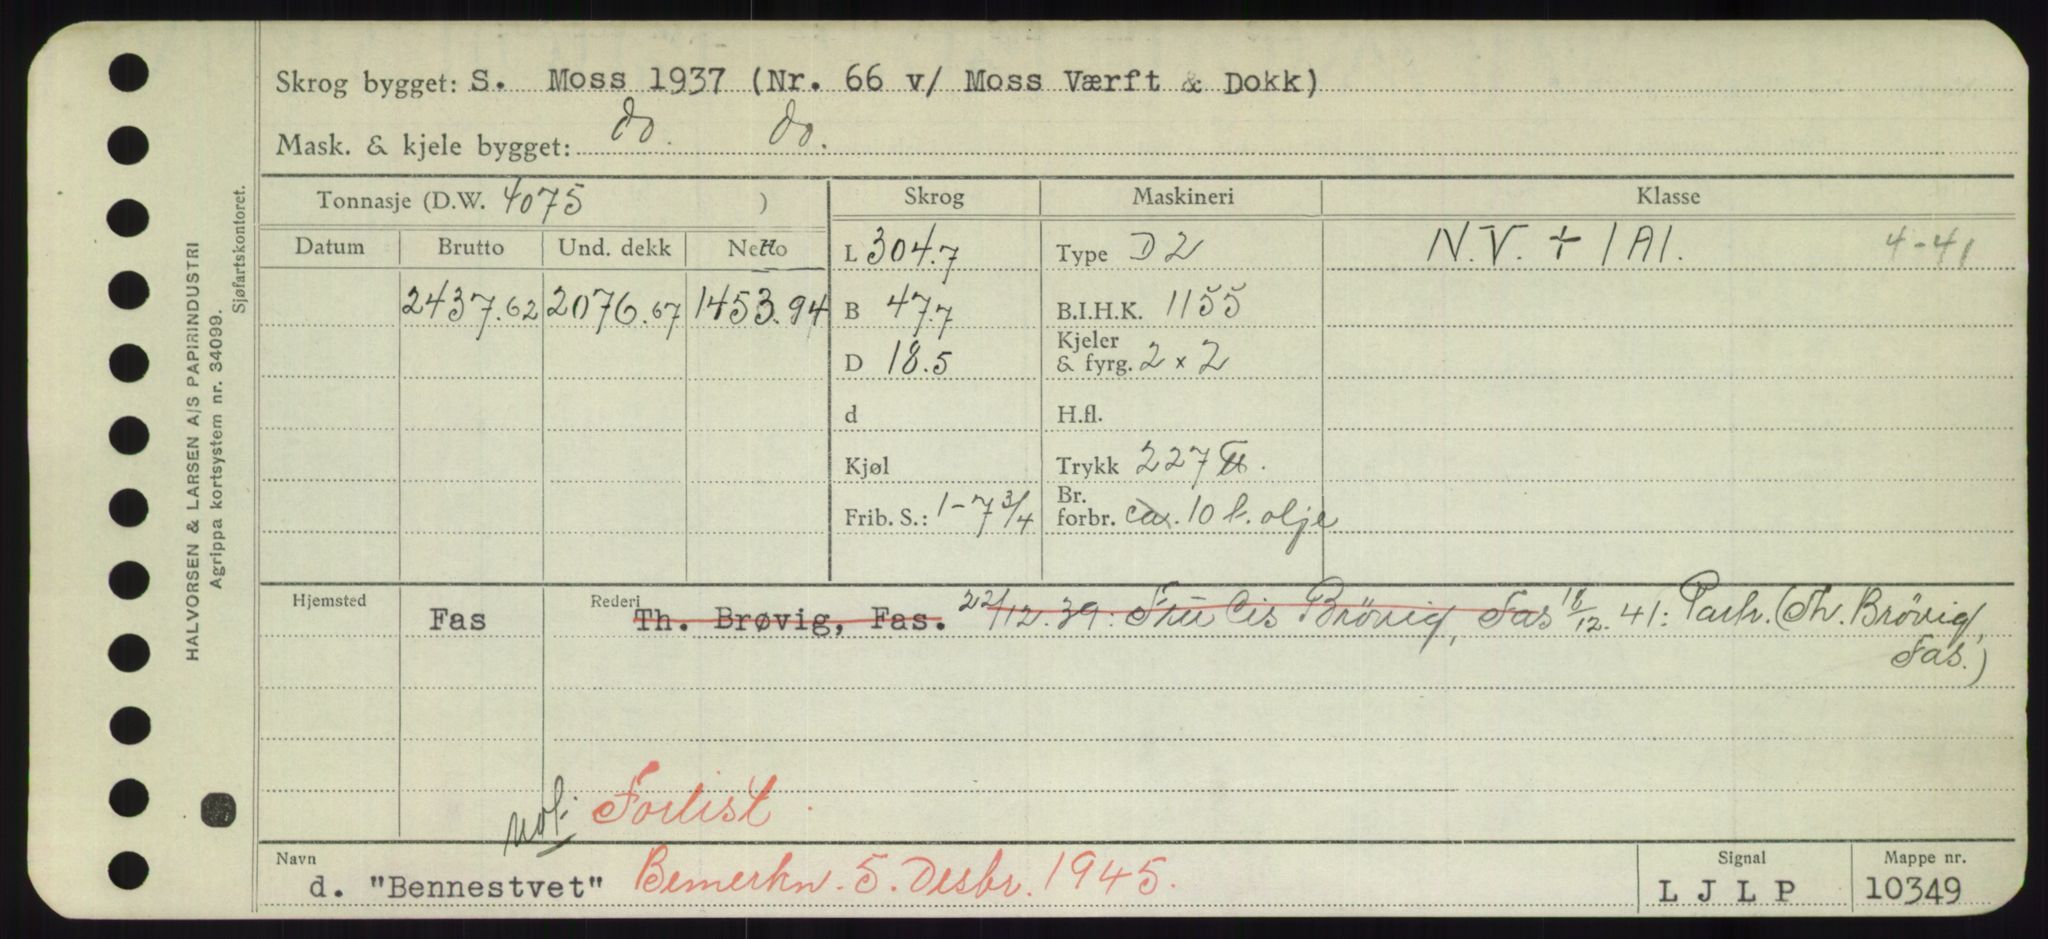 Skrog bygget: S. Moss 1937 (Nr. 66 v/ Moss Værft & Dokk)
Mask. & kjele bygget: do. do.
Tonnasje (D.W. 4075 )
Skrog
Maskineri
Klasse
Datum
Brutto
Und. dekk
Netto
L 304.7
Type D 2
N.V. + 1A1. 4-41
2437.62
2076.67
1453.94
B 47.7
B.I.H.K. 1155
D 18.5
Kjeler
& fyrg. 2 x 2
d
H.fl.
Kjøl
Trykk 227 lb.
Frib. S.: 1-7 3/4
Br.
forbr. ca. 10 t. olje
Hjemsted
Rederi
Fas
Th. Brøvig, Fas. 22/12.39: Fru Cis Brövig, Fas 18/12.41: Parh. (Th. Brövig,
Fas.)
Forlist
Navn
d. "Bennestvet" Bemerkn. 5. Desbr. 1945.
Signal
L J L P
Mappe nr.
10349
HALVORSEN & LARSEN A/S PAPIRINDUSTRI
Agrippa kortsystem nr. 34099.
Sjøfartskontoret.